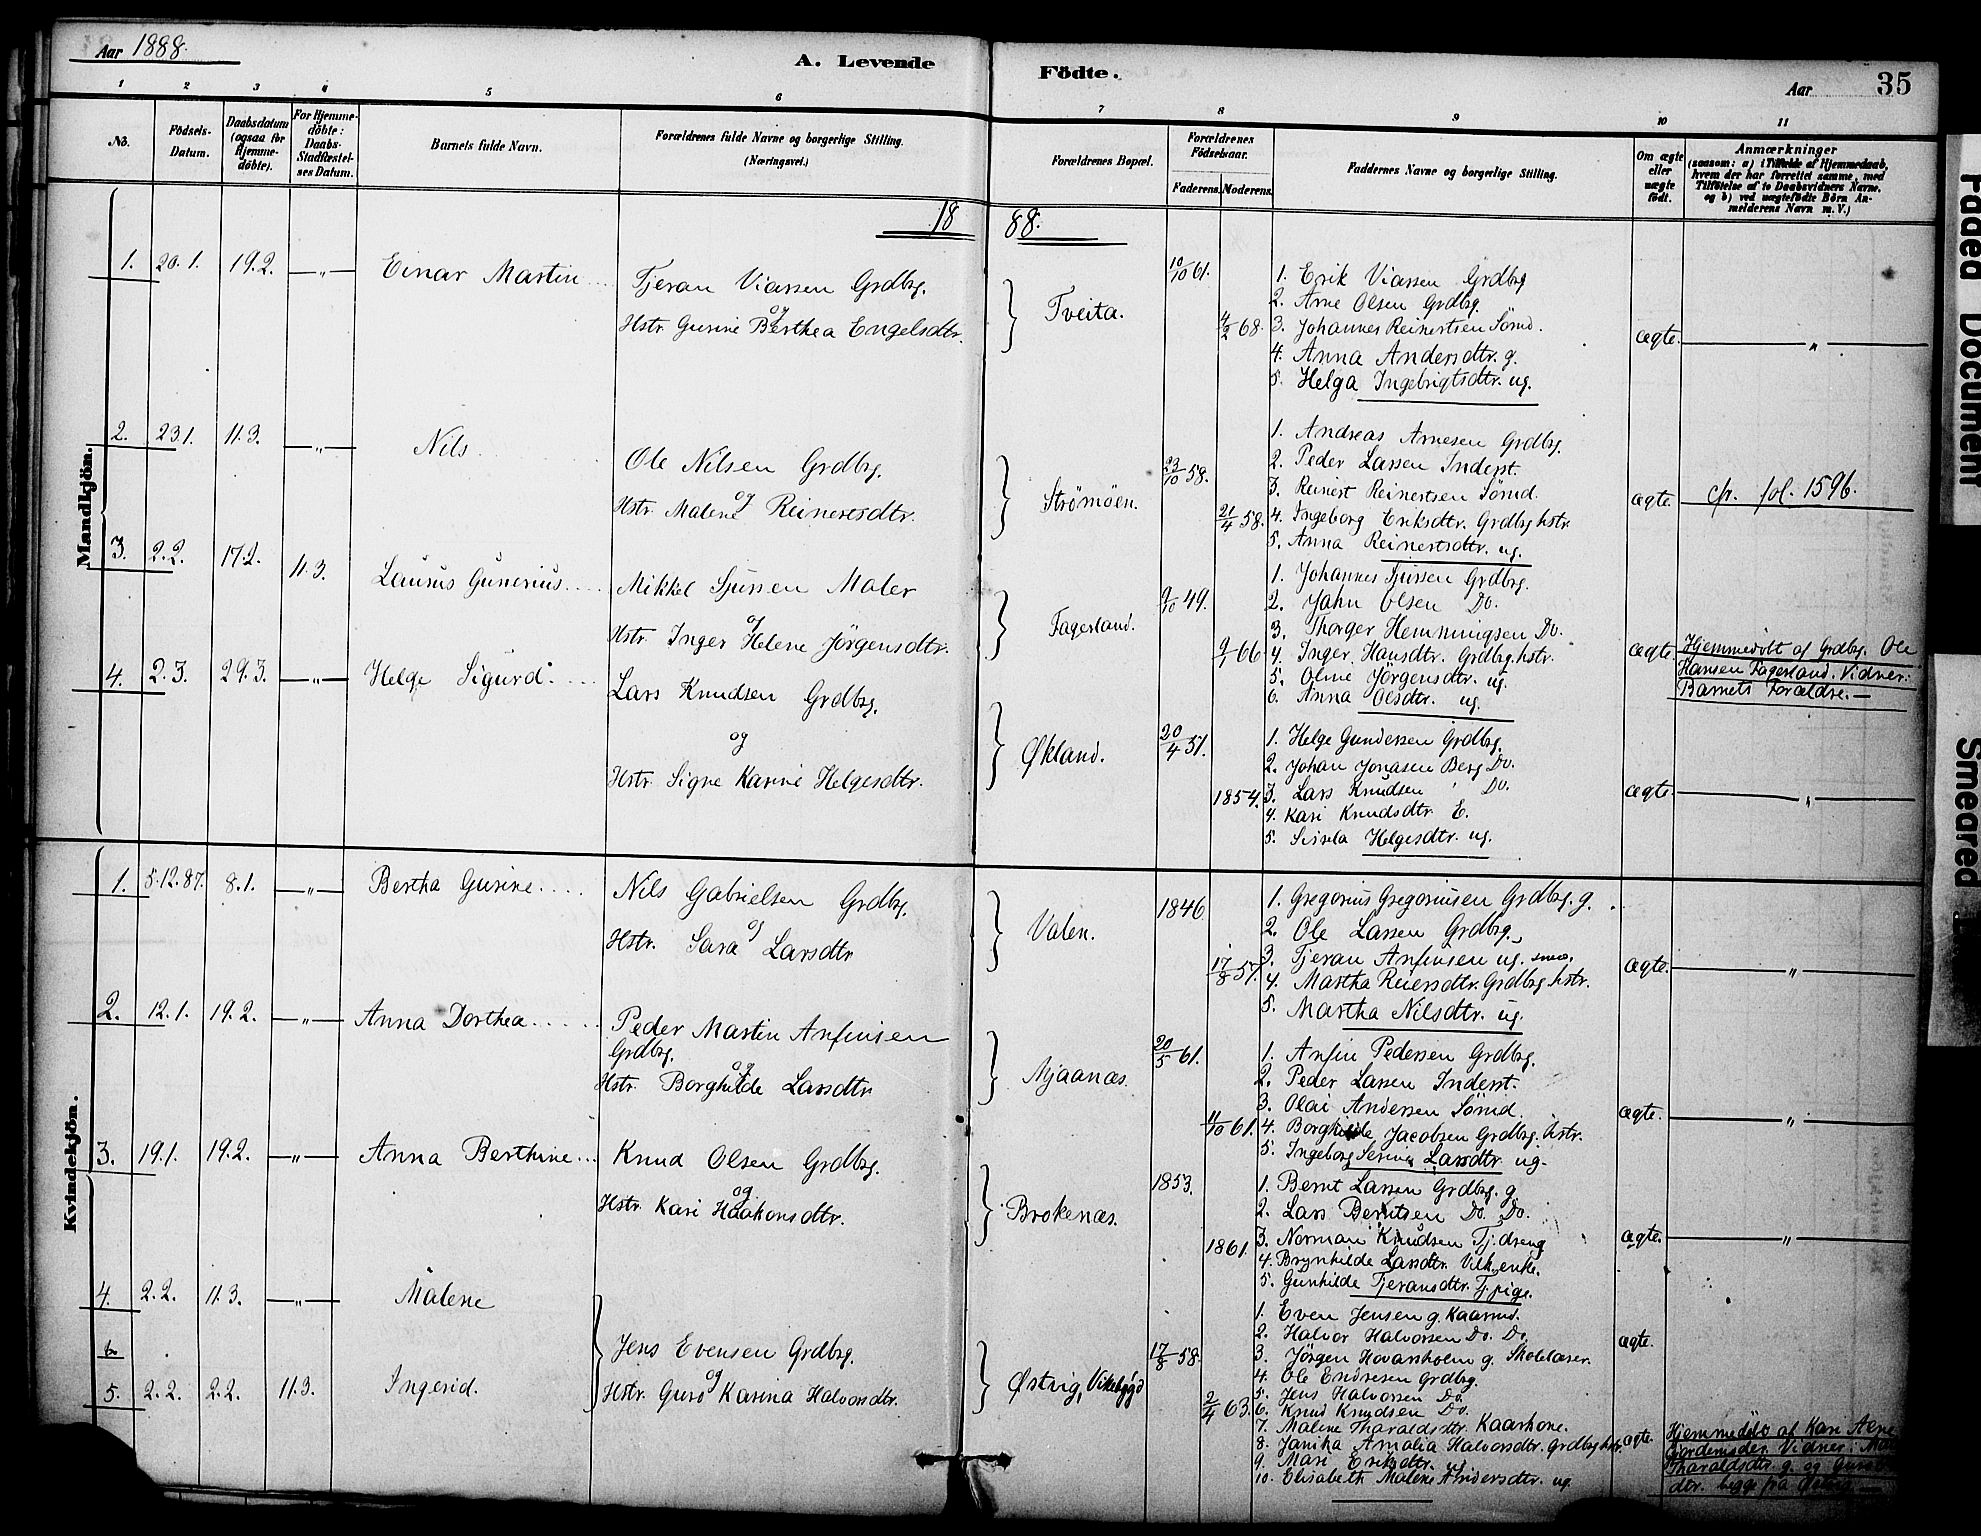 Aar 1888.
A. Levende
Födte.
Aar
35
1 2 3 4 5 6 7 8 9 10 11
No.
Födsels-
Datum.
Daabsdatum
(ogsaa for
Hjemme-
döbte).
For Hjemme-
döbte:
Daabs-
Stadfæstel-
ses Datum.
Barnets fulde Navn.
Forældrenes fulde Navne og borgerlige Stilling.
(Næringsvei.)
Forældrenes Bopæl.
Forældrenes
Födselsaar.
Faderens. Moderens.
Faddernes Navne og borgerlige Stilling.
Om ægte
eller
uægte
födt.
Anmærkninger
(saasom: a) i Tilfælde af Hjemmedaab,
hvem der har forrettet samme, med
Tilföielse af to Daabsvidners Navne,
og b) ved uægtefödte Börn An-
melderens Navn m. V.)
1888.
Mandkjön.
1. 20.1. 19.2. —„— Einar Martin
Tjeran Viassen Grdbrg.
og
Hstr. Gurine Berthea Engelsdtr.
Tveita.
10/10 61.
4/2 68.
1. Erik Viassen Grdbrg
2. Arne Olsen Grdbrg.
3. Johannes Reinertsen Sömd.
4. Anna Andersdtr. g.
5. Helga Ingebrigtsdtr. ug.
ægte. „
2. 23.1. 11.3. —„— Nils
Ole Nilsen Grdbrg.
og
Hstr. Malene Reinertsdtr.
Strömöen.
23/10 58.
21/4 58.
1. Andreas Arnesen Grdbrg.
2. Peder Larsen Inderst.
3. Reinert Reinertsen Sömd.
4. Ingeborg Eriksdtr. Grdbrghstr
5. Anna Reinertsdtr. ug.
ægte. cfr. fol. 1596.
3. 2.2. 17.2. 11.3. Laurus Gunerius
Mikkel Sjursen Maler
og
Hstr. Inger Helene Jörgensdtr.
Fagerland.
9/10 49.
9/1 66
1. Johannes Sjursen Grdbrg.
2. Jahn Olsen Do.
3. Thorger Hemmingsen Do.
4. Inger Hansdtr. Grdbrg.hstr.
5. Oline Jörgensdtr. ug.
6. Anna Olsdtr. ug.
ægte. Hjemmedöbt af Grdbrg. Ole
Hansen Fagerland. Vidner:
Barnets Forældre.—
4. 2.3. 29.3. —„— Helge Sigurd
Lars Knudsen Grdbrg.
og
Hstr. Signe Karine Helgesdtr.
Økland.
20/4 51.
1854.
1. Helge Gundersen Grdbrg.
2. Johan Jonasen Berg Do.
3. Lars Knudsen Do.
4. Kari Knudsdtr E.
5. Sissela Helgesdtr. ug.
ægte. „
Kvindekjön.
1. 5.12.87. 8.1. —„— Bertha Gurine
Nils Gabrielsen Grdbrg.
og
Hstr. Sara Larsdtr
Valen.
1846
17/8 57.
1. Gregorius Gregoriusen Grdbrg. g.
2. Ole Larsen Grdbrg.
3. Tjeran Anfinsen ug.
4. Martha Reiersdtr. Grdbrg.hstr.
5. Martha Nilsdtr. ug.
ægte. „
2. 12.1. 19.2. —„— Anna Dorthea
Peder Martin Anfinsen
Grdbrg.
og
Hstr. Borghilde Larsdtr
Mjaanæs.
20/5 61.
11/10 61.
1. Anfin Pedersen Grdbrg.
2. Peder Larsen Inderst.
3. Olai Andersen Sömd.
4. Borghilde Jacobsen Grdbrg.hstr.
5. Ingeborg Serina Larsdtr ug.
ægte. „
3. 19.1. 19.2. —„— Anna Berthine
Knud Olsen Grdbrg.
og
Hstr. Kari Haakonsdtr.
Brokenæs.
1853.
1861.
1. Bernt Larsen Grdbrg. g.
2. Lars Berntsen Do. Do.
3. Norman Knudsen Tj.dreng
4. Brynhilde Larsdtr. Vilk.enke.
5. Gunhilde Tjeransdtr. Tj.pige.
ægte. „
4. 2.2. 11.3. —„— Malene
5. 2.2. 2.2. 11.3. Ingerid.
Jens Evensen Grdbrg.
og
Hstr. Guro Karina Halvorsdtr.
Østvig, Vikebygd
17/8 58.
2/4 63.
1. Even Jensen g. Kaarmd.
2. Halvor Halvorsen Do. Do.
3. Jörgen Hovarsholm g. Skolelærer.
4. Ole Endresen Grdbrg.
5. Jens Halvorsen Do.
6. Knud Knudsen Do.
7. Malene Tharaldsdtr. Kaarkone.
8. Janika Amalia Halvorsdtr. Grdbrghstr.
9. Mari Eriksdtr. ug
10. Elisabeth Malene Andersdtr. ug
ægte.
ægte.
Hjemmedöbt af Kari Arne
Jordemoder. Vidner:
Tharaldsdtr g. og
dtr. begge fra
Faded Document
Smeared